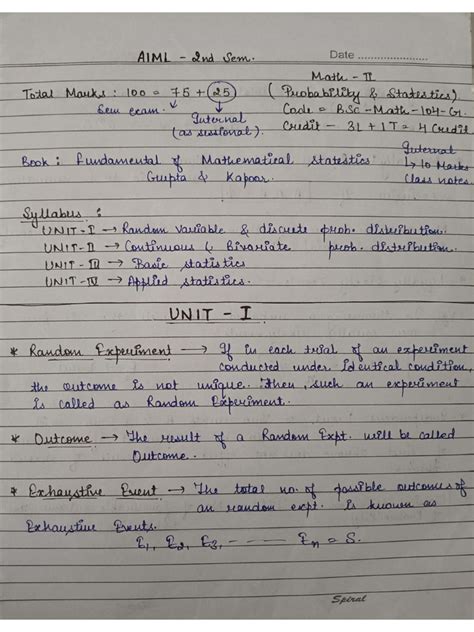 AIML - 2nd Sem.
Date
Math - II
Total Marks : 100 = 75 + 25 ( Probability & Statistics)
Sem exam. Internal Code = BSC-Math-104-G.
(as sessional). Credit - 3L + 1T = 4 Credit
Internal
Book : Fundamental of Mathematical statestics ↳ 10 Marks
Gupta & Kapoor. Class notes.
Syllabus :
UNIT - I → Random variable & discrete prob. distribution.
UNIT - II → Continuous & Bivariate prob. distribution.
UNIT - III → Basic statistics
UNIT - IV → Applied statistics.
UNIT - I
* Random Experiment → If in each trial of an experiment
conducted under identical condition,
the outcome is not unique. Then, such an experiment
is called as Random Experiment.
* Outcome → The result of a Random Expt. will be called
Outcome.
* Exhaustive Event → The total no. of possible outcomes of
an random expt. is known as
Exhaustive Events.
E₁, E₂, E₃, ------ Eₙ = S.
Spiral